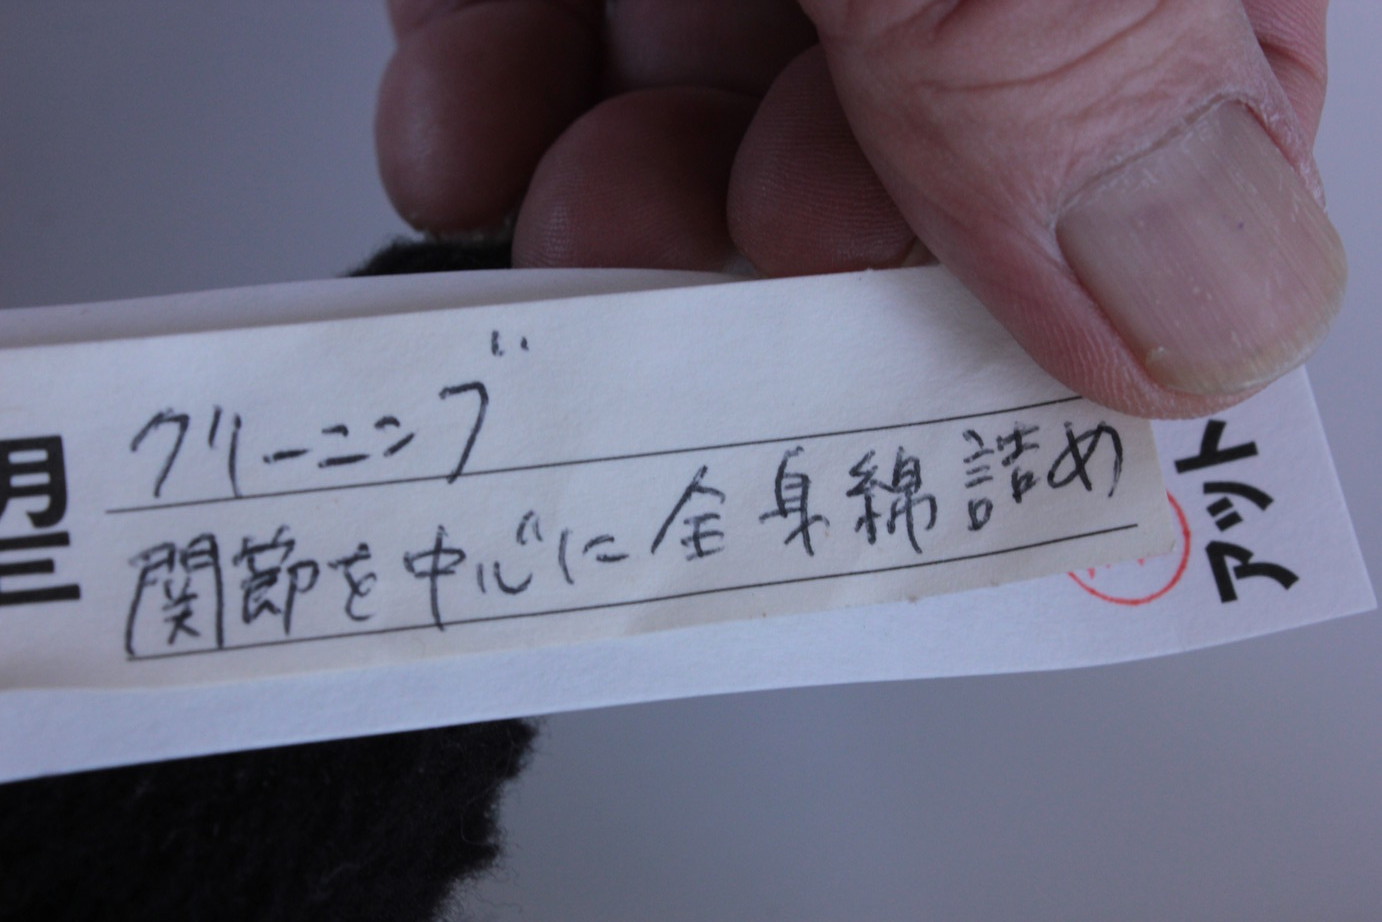 クリーニング
関節を中心に全身綿詰め
アット